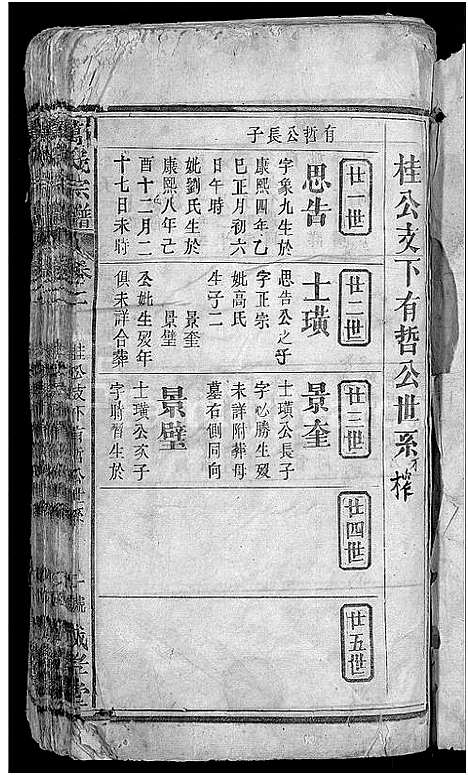 桂公支下有哲公世系
廿一世
有哲公長子
思告
字象九生於
康熙四年乙
巳正月初六
日午時
妣劉氏生於
康熙八年己
酉十二月二
十七日未時
廿二世
士璜
思告公之子
字正宗
妣高氏
生子二
景奎
景壁
公妣生歿年
俱未詳合葬
廿三世
景奎
士璜公長子
字必勝生歿
未詳附葬母
墓右側同向
景壁
士璜公次子
字時習生於
廿四世
廿五世
宗譜
卷之二
桂公支下有哲公世系
誠孝堂